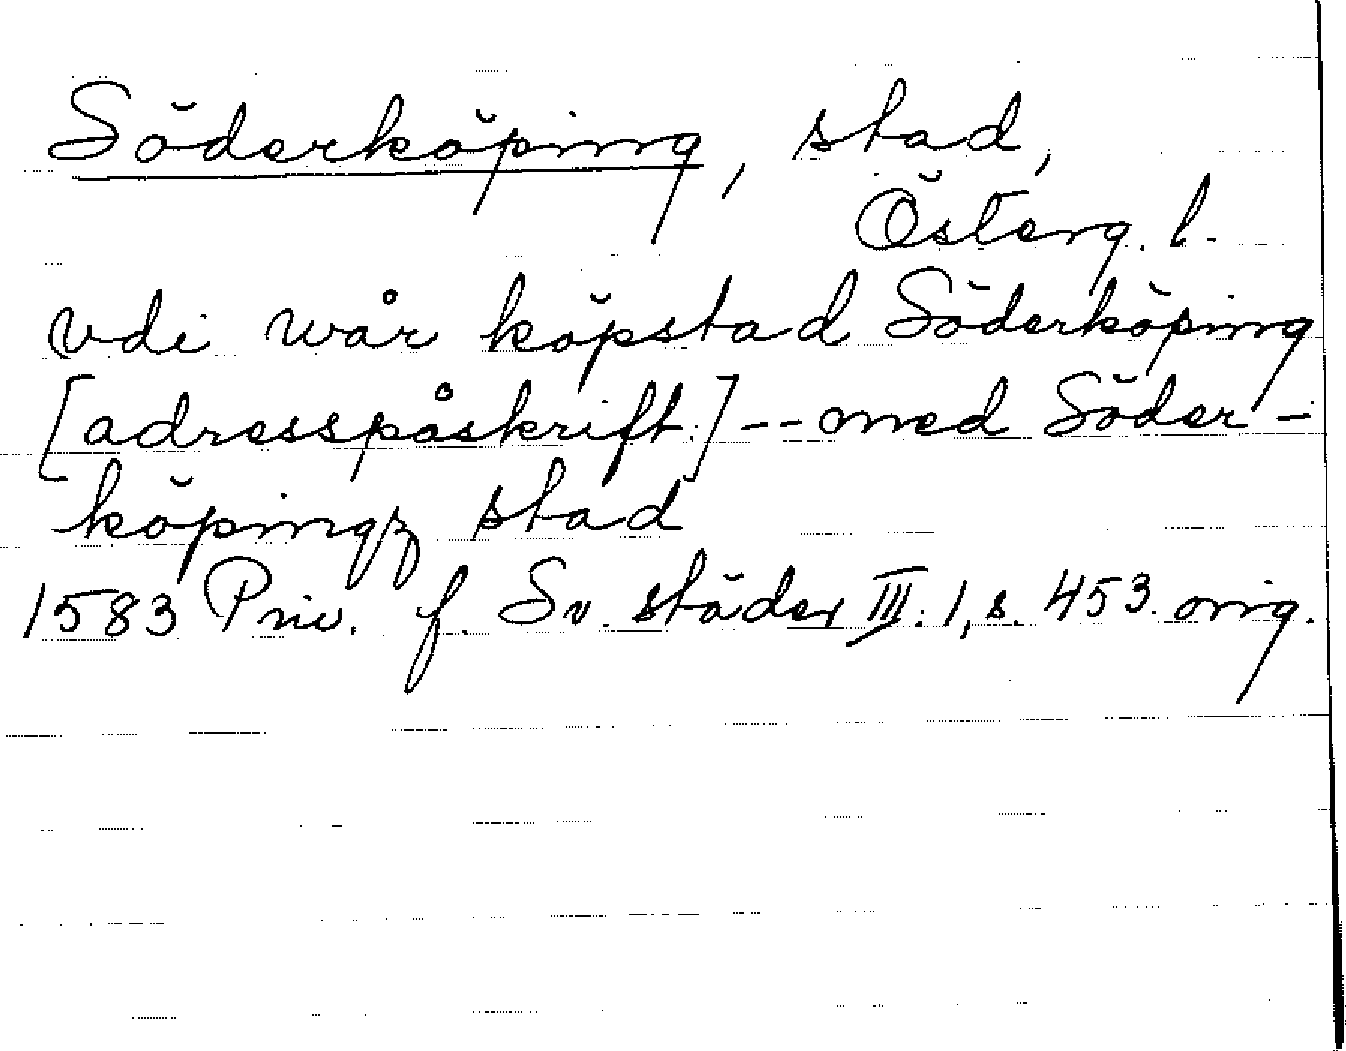 Söderköping, stad,
Österg. l.
vdi wår köpstad Söderköping
[adresspåskrift.] -- med Söder-
köpingz stad
1583 Priv. f. Sv. städer III:1, s. 453. orig.